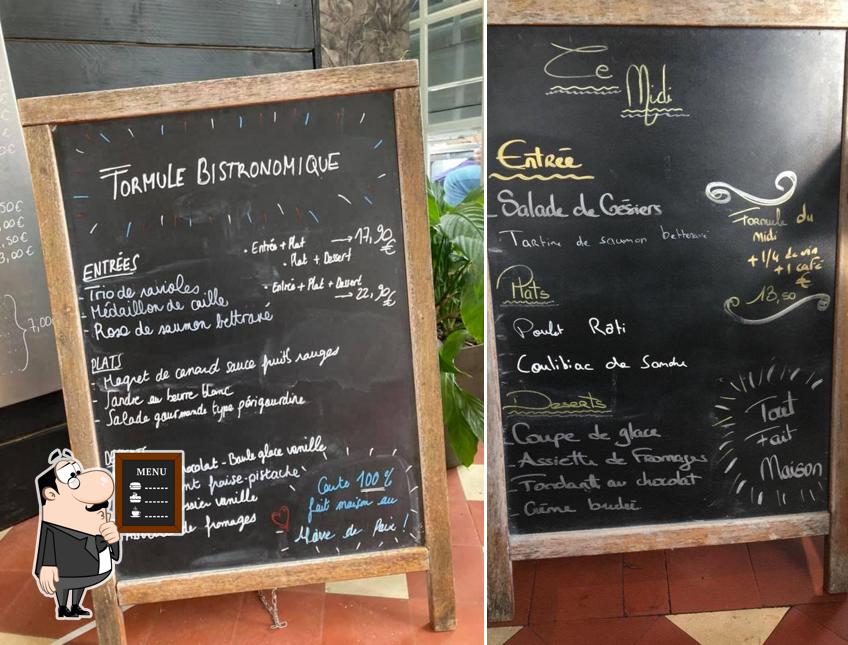 FORMULE BISTRONOMIQUE
• Entrée + Plat → 17,90 €
• Plat + Dessert
• Entrée + Plat + Dessert
→ 22,90 €
ENTRÉES
- Trio de ravioles
- Médaillon de caille
- Rose de saumon bettravé
PLATS
- Magret de canard sauce fruits rouges
- Sandre au beurre blanc
- Salade gourmande type périgourdine
chocolat - Boule glace vanille
fraise-pistache
vanille
de fromages
Carte 100%
fait maison au
Havre de Paix !
MENU
50€
,00€
,50€
3,00€
7,00
Ce
Midi
Entrée
- Salade de Gésiers
- Tartine de saumon betterave
Plats
Poulet Roti
Coulibiac de Sandre
Desserts
- Coupe de glace
- Assiette de Fromages
- Fondant au chocolat
- Crème brulée
Formule du
midi
+ 1/4 de vin
+ 1 café
€
13,50
Tout
Fait
Maison